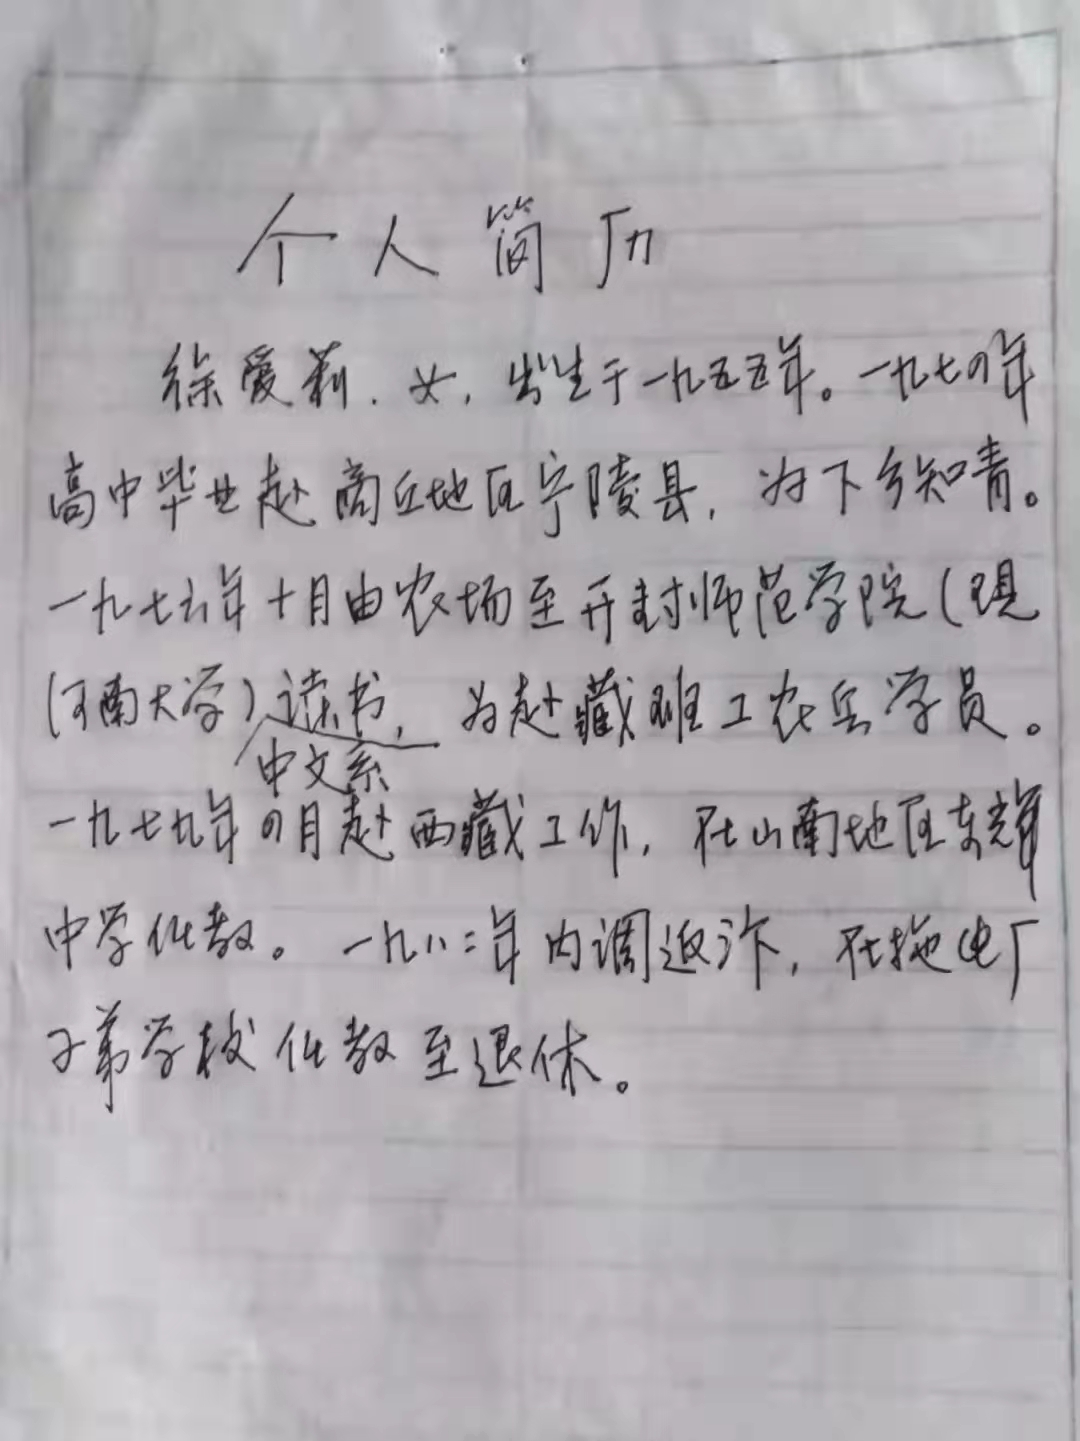 个人简历
徐爱莉.女,出生于一九五五年。一九七四年
高中毕业赴商丘地区宁陵县,为下乡知青。
一九七六年十月由农场至开封师范学院(现
河南大学)读书,为赴藏班工农兵学员。
中文系
一九七九年四月赴西藏工作,在山南地区东辉
中学任教。一九八二年内调返汴,在拖电厂
子弟学校任教至退休。